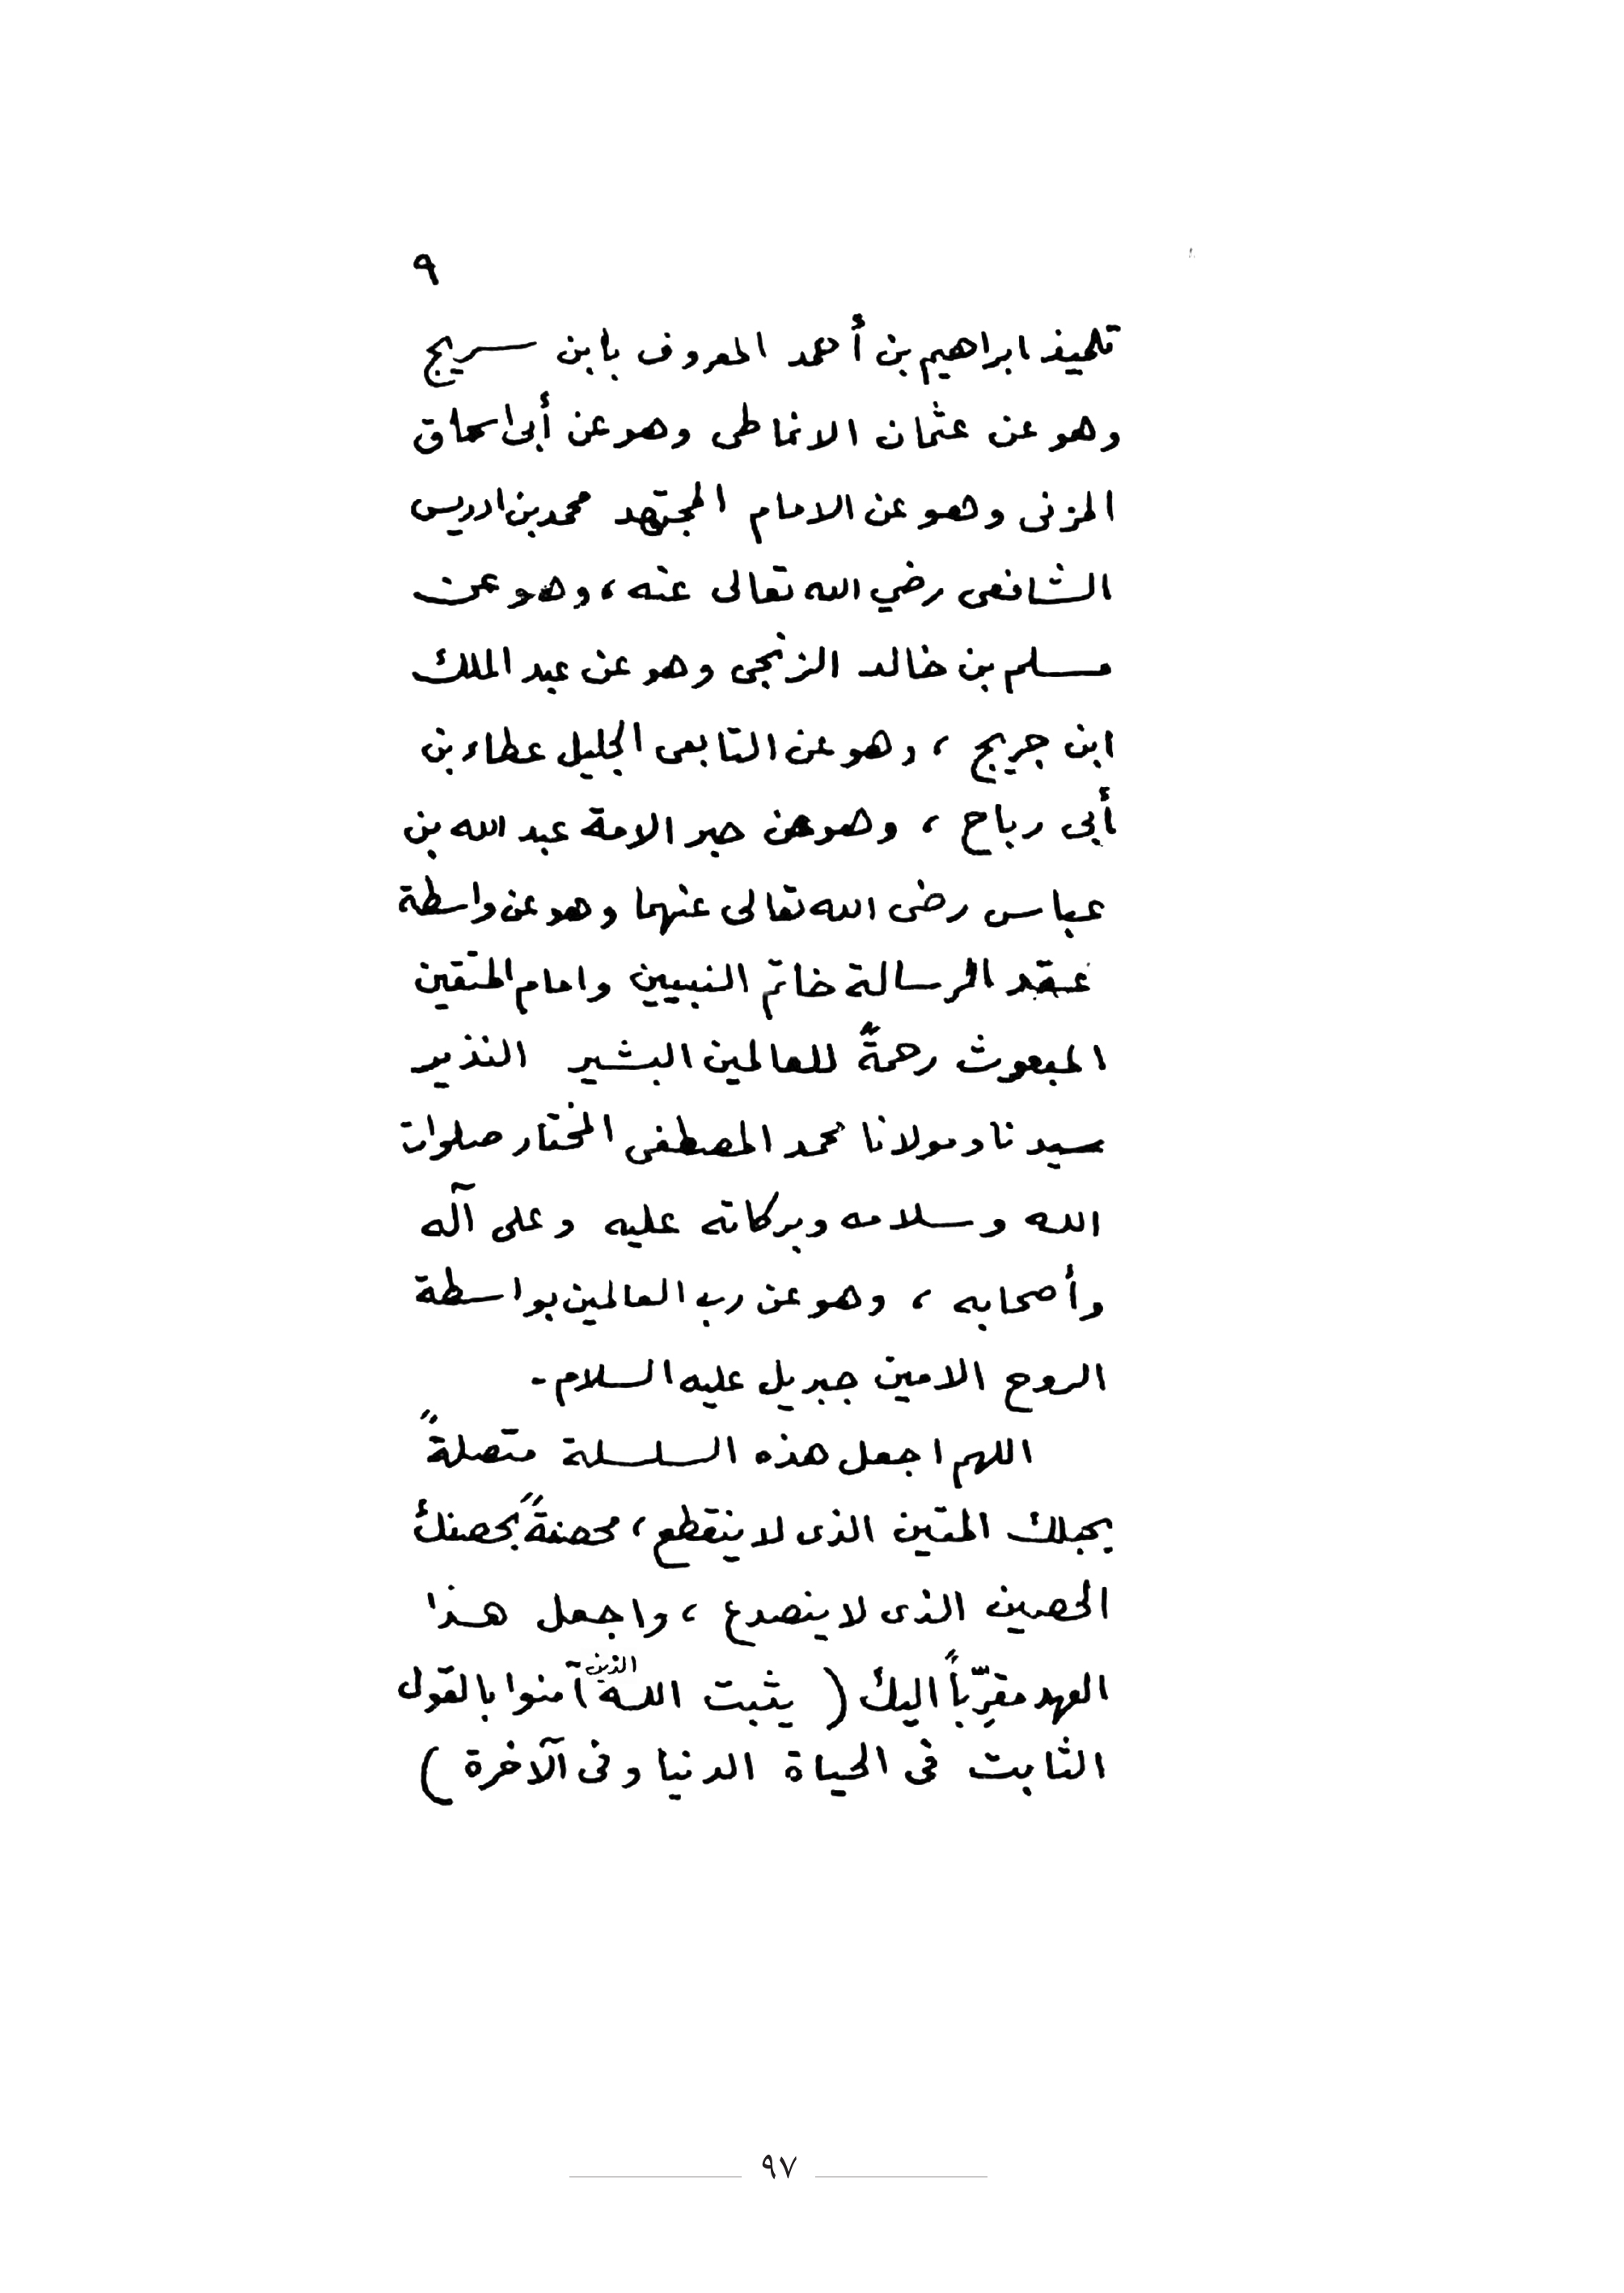 ٩
تلميذ ابراهيم بن أحمد المعروف بابن سريج
وهو عن عثمان الانماطى وهو عن أبى اسحاق
المزنى وهو عن الامام المجتهد محمد بن ادريس
الشافعى رضي الله تعالى عنه ، وهو عن
مسلم بن خالد الزنجى وهو عن عبد الملك
ابن جريج ، وهو عن التابعى الجليل عطاء بن
أبى رباح ، وهو عن حبر الامة عبد الله بن
عباس رضى الله تعالى عنهما وهو عن واسطة
عقد الرسالة خاتم النبيين وامام المتقين
المبعوث رحمةً للعالمين البشير النذير
سيدنا ومولانا محمد المصطفى المختار صلوات
الله وسلامه وبركاته عليه وعلى آله
وأصحابه ، وهو عن رب العالمين بواسطة
الروح الامين جبريل عليه السلام -
اللهم اجعل هذه السلسلة متصلةً
بحبلك المتين الذى لا ينقطع ، محصنةً بحصنك
الحصين الذى لا ينصدع ، واجعل هذا
العهد مقرِّباً اليك ( يثبت الله الذين آمنوا بالقول
الثابت فى الحياة الدنيا وفى الآخرة )
٩٧